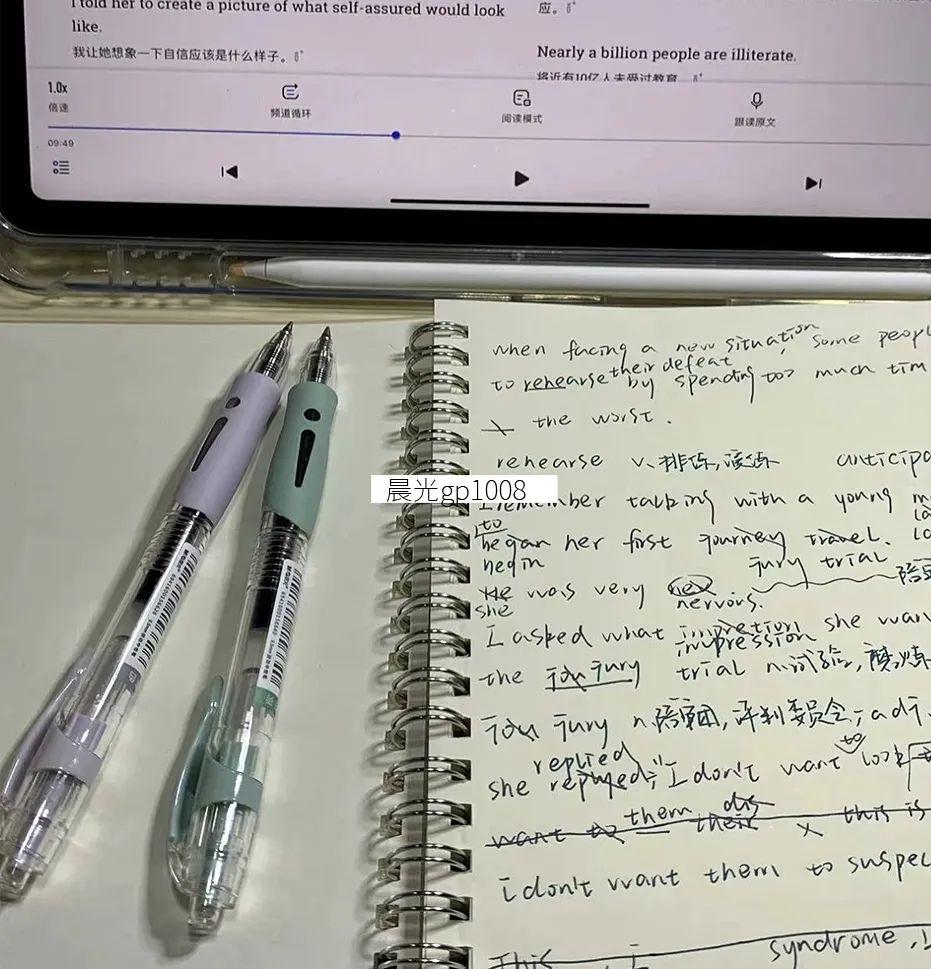 I told her to create a picture of what self-assured would look
like.
我让她想象一下自信应该是什么样子。
应。
Nearly a billion people are illiterate.
将近有10亿人未受过教育
1.0x
倍速
频道循环
阅读模式
跟读原文
09:49
晨光gp1008
when facing a new situation, some peopl
to rehearse their defeat by spending too much tim
the worst.
rehearse v.排练,演练 anticipa
I remember talking with a young
to
began her first journey travel.
begin
jury trial
He was very nervous.
she
I asked what impression she wan
the jury trial n.试验,磨炼
jury n.陪审团,评判委员会; adj.
replied
she replyed: "I don't want to look
want to them their x this is
i don't want them to suspec
This syndrome,